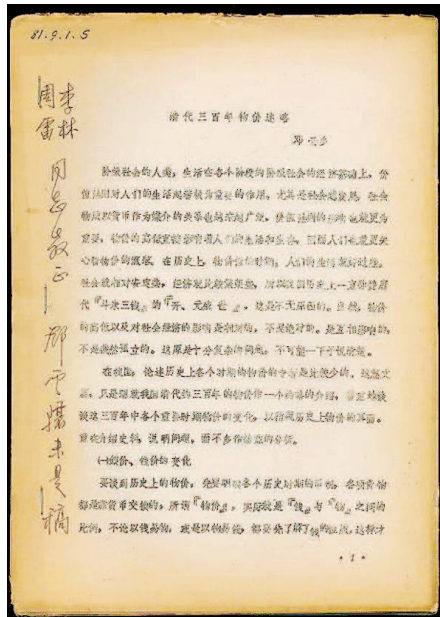 81.9.1.5
李林
周雷
同志教正
邓云骧未是稿
清代三百年物价述略
邓云乡
阶级社会的人类，生活在各个阶段的阶级社会的经济基础上，价
值法则对人们的生活起着极为重要的作用，尤其是社会越发展，社会
物质以货币作为媒介的关系也越来越广泛，价值法则的影响也就更为
重要，物价的高低直接影响着人们的生活和生命，因而人们也就更关
心着物价的涨落。在历史上，物价低的时期，人们的生活就好过些，
社会就相对安定些，经济就是较繁荣些，所以我国历史上一直
代“斗米三钱”的“开、元盛世”，这是不无原因的。当然，物价
的高低以及对社会经济的影响是相对的，不是绝对的。是互相影响的，
不是截然孤立的。这原是十分复杂的问题，不可能一下子说清楚。
在我国，论述历史上各个时期的物价的专著是比较少的，这篇文
章，只是想就我国清代约三百年的物价作一个简略的介绍，
谈这三百年中各个重要时期物价的变化，以
重在介绍史料，说明问题，而不多作
㈠银价、钱价的变化
要谈到历史上的物价，先要明了各个历史时期的币制，各项货物
都是靠货币交换的，所谓“物价”，实际就是“钱”与“物”之间的
比例，不论以钱易物，或是以物易钱，都要先了解了钱的
•1•